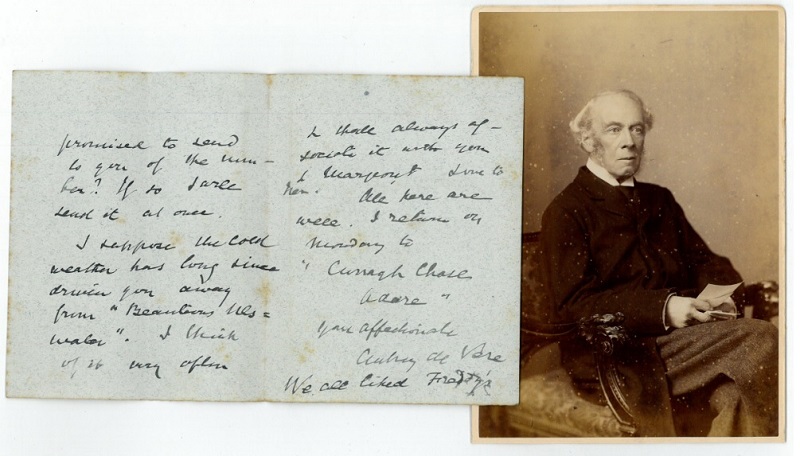 promised to send
to you of the num-
ber? If so I will
send it at once.
I suppose the cold
weather has long since
driven you away
from "Beauteous Ulls=
water". I think
of it very often
I shall always as-
sociate it with you
& Margaret love to
her. All here are
well. I return on
Monday to
"Curragh Chase
Adare"
Your affectionate
Aubrey de Vere
We all liked